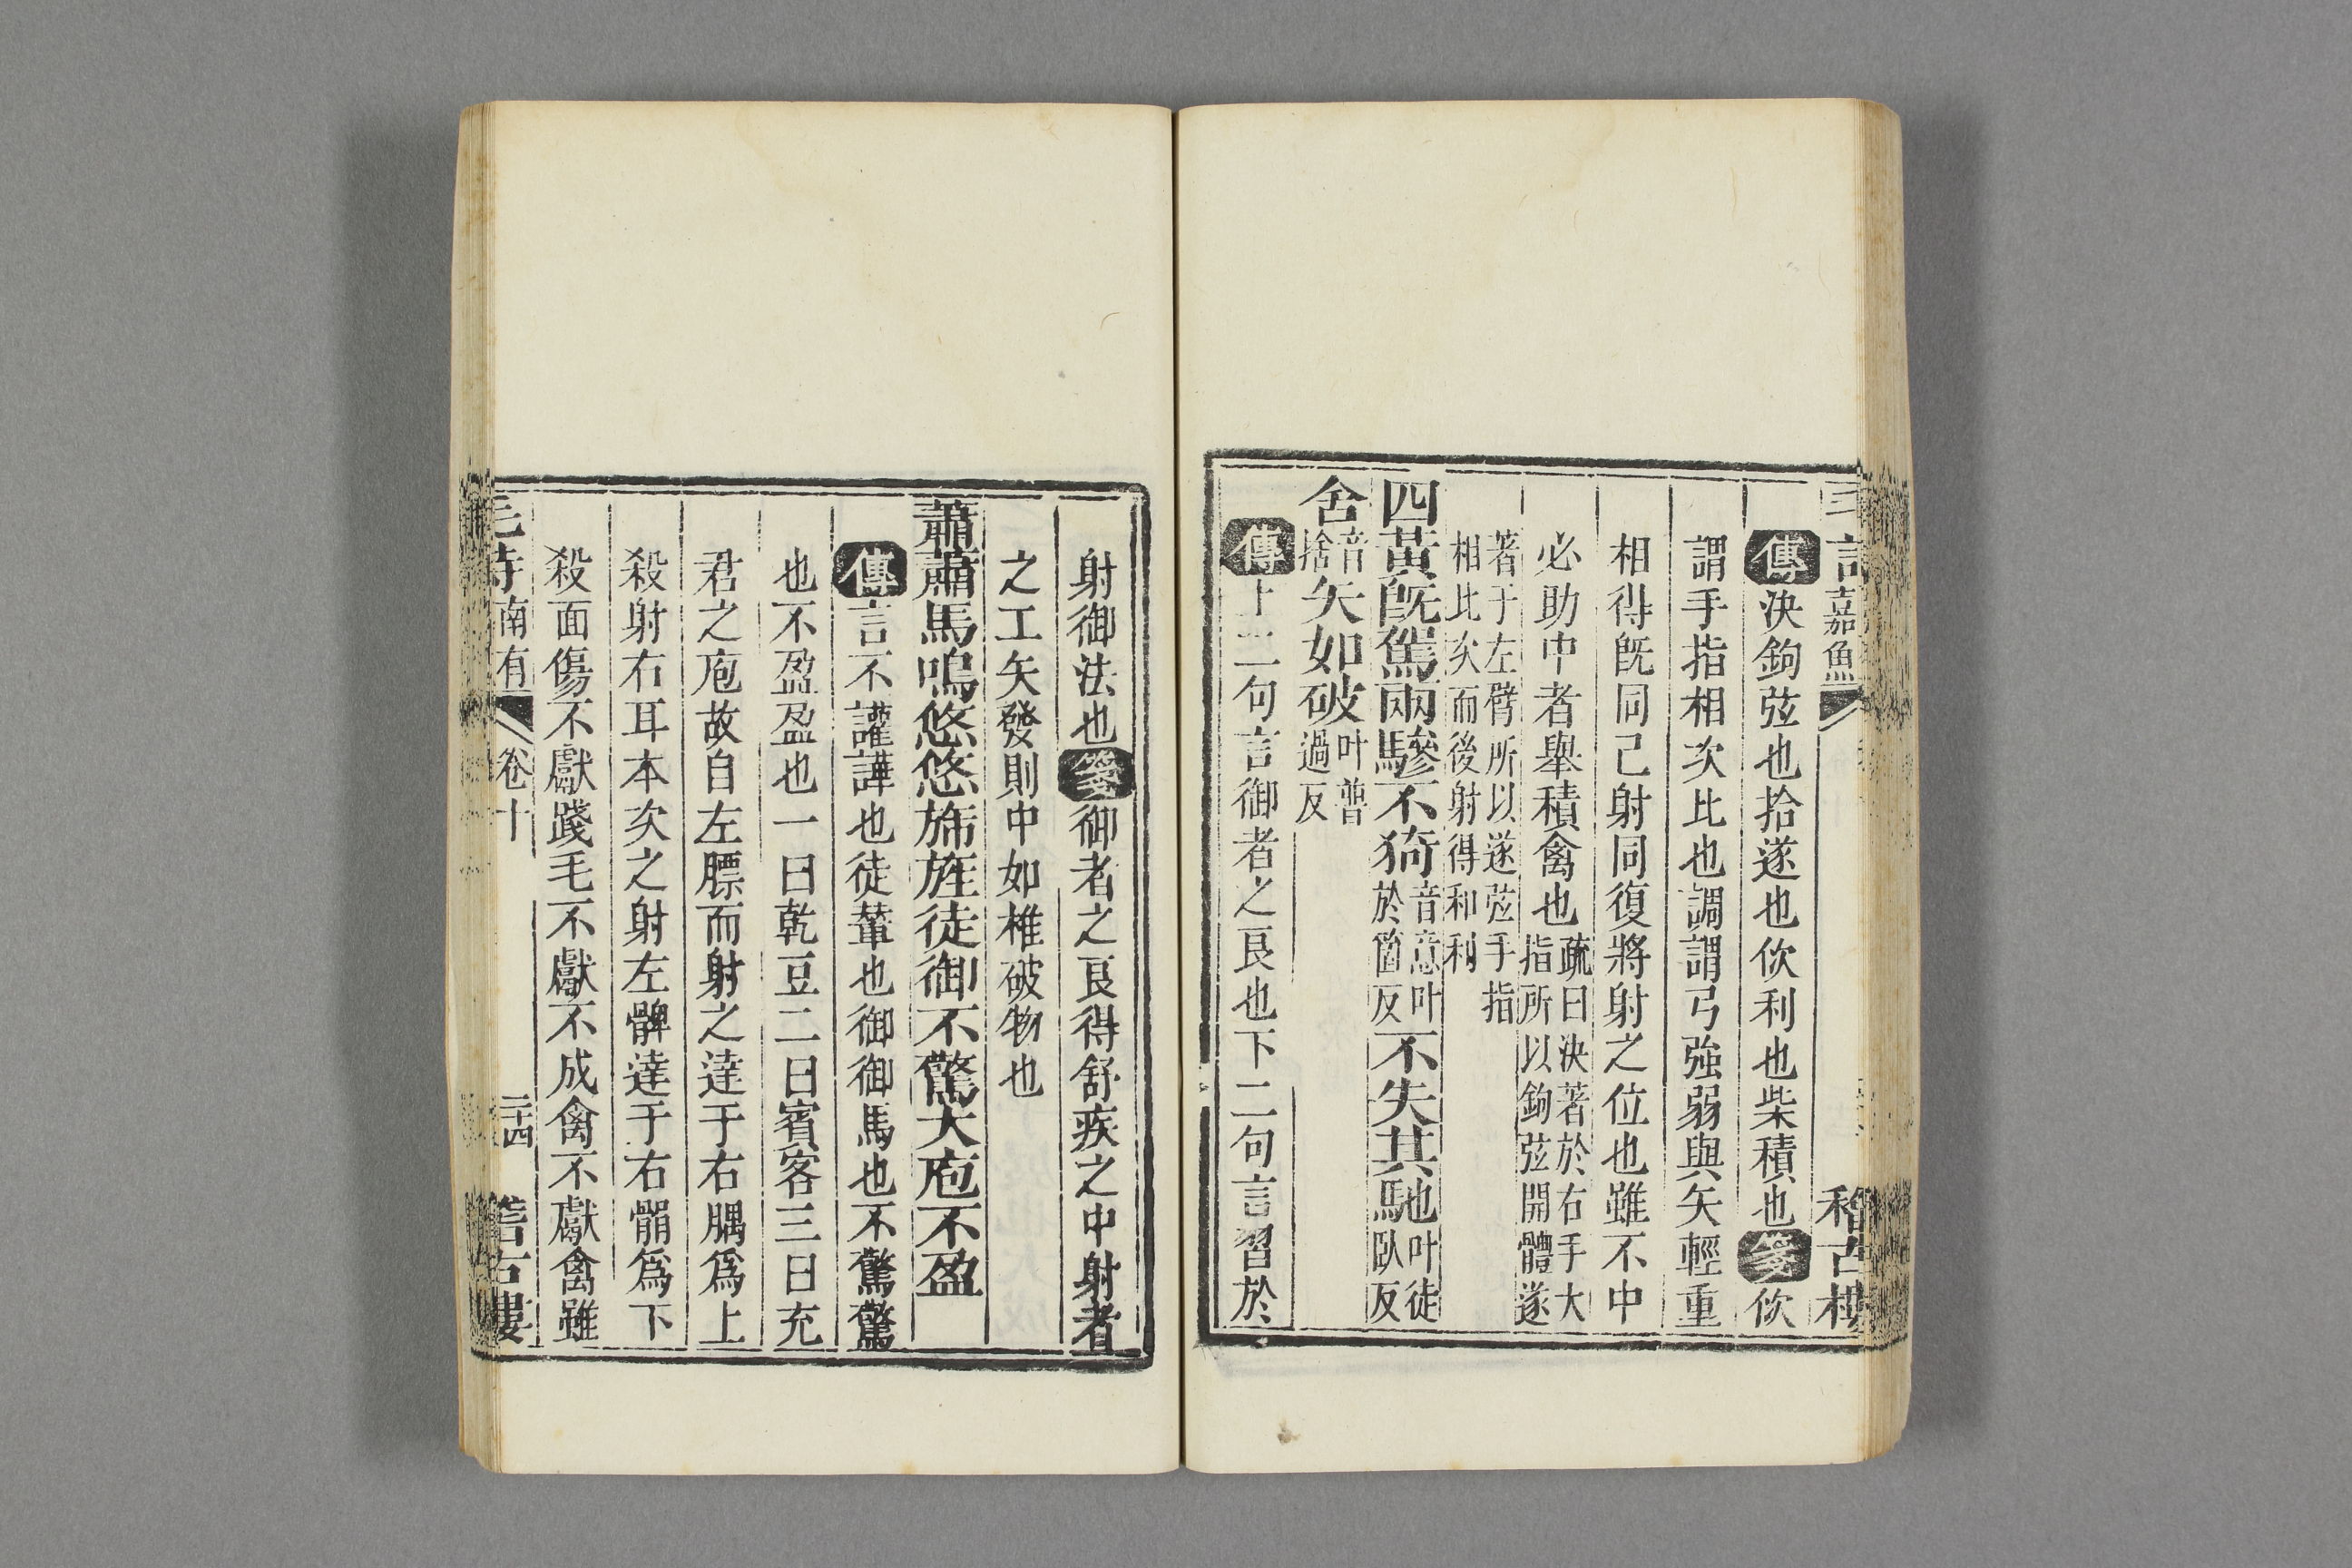 詩嘉魚 稽古樓
傳決鉤弦也拾遂也佽利也柴積也箋佽
謂手指相次比也調謂弓強弱與矢輕重
相得既同已射同復將射之位也雖不中
必助中者舉積禽也疏曰決著於右手大指所以鉤弦開體遂
著于左臂所以遂弦手指相比次而後射得和利
四黃既駕兩驂不猗音意叶於箇反不失其馳叶徒臥反
舍音捨矢如破叶普過反
傳上二句言御者之良也下二句言習於
射御法也箋御者之良得舒疾之中射者
之工矢發則中如椎破物也
蕭蕭馬鳴悠悠斾旌徒御不驚大庖不盈
傳言不讙譁也徒輦也御御馬也不驚驚
也不盈盈也一曰乾豆二曰賓客三曰充
君之庖故自左膘而射之達于右腢為上
殺射右耳本次之射左髀達于右䯚為下
殺面傷不獻踐毛不獻不成禽不獻禽雖
毛詩南有 卷十 二十四 稽古樓